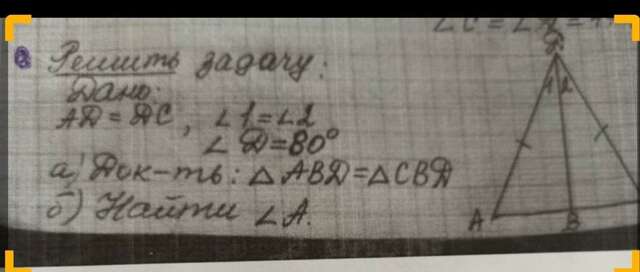 Решить задачу:
Дано:
AD = DC, ∠1 = ∠2
∠D = 80°
а) Док-ть: △ABD = △CBD
б) Найти ∠A.
D
1 2
A
B